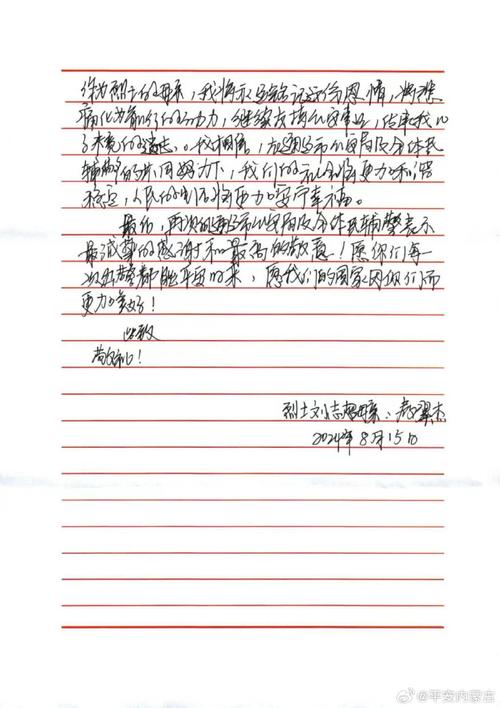 作为烈士的母亲，我将永远铭记这份恩情，将悲
痛化为前行的动力，继续支持公安事业，传承我儿
子未竟的遗志。我相信，在 市公安局及全体民
辅警的共同努力下，我们的社会将更加和谐
稳定，人民的生活将更加安宁幸福。
最后，再次向 市公安局及全体民辅警表示
最诚挚的感谢和最高的敬意！愿你们每一
次出警都能平安归来，愿我们的国家因你们而
更加美好！
此致
敬礼！
烈士刘志 母亲： 翠杰
2024年8月15日
@平安内蒙古